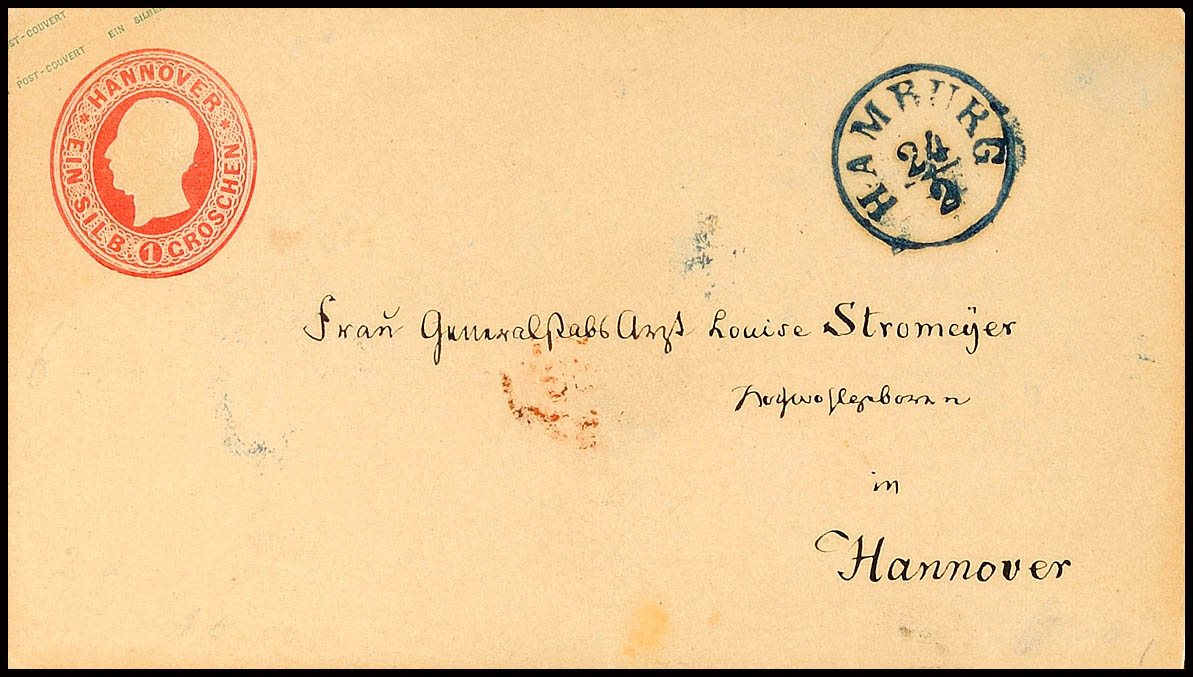 ST-COUVERT EIN SILBER
POST-COUVERT
* HANNOVER *
EIN SILB. 1 GROSCHEN
HAMBURG
24
2
Frau GeneralstabsArzt Louise Stromeÿer
Hochwohlgeboren
in
Hannover